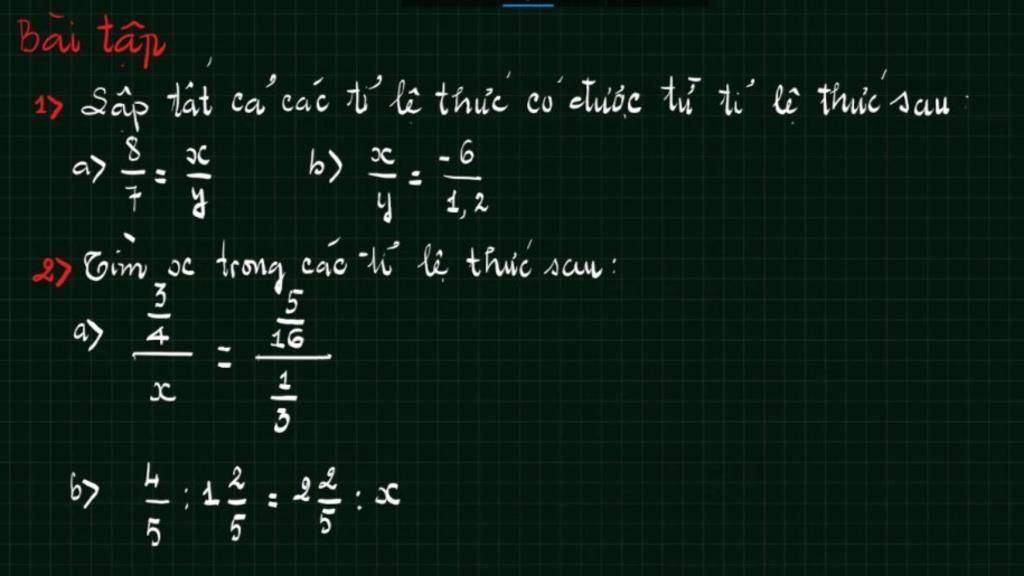 Bài tập
1> Lập tất cả các tỉ lệ thức có được từ tỉ lệ thức sau:
a> 8/7 = x/y b> x/y = -6/1,2
2> Tìm x trong các tỉ lệ thức sau:
a> (3/4)/x = (5/16)/(1/3)
b> 4/5 : 1 2/5 = 2 2/5 : x